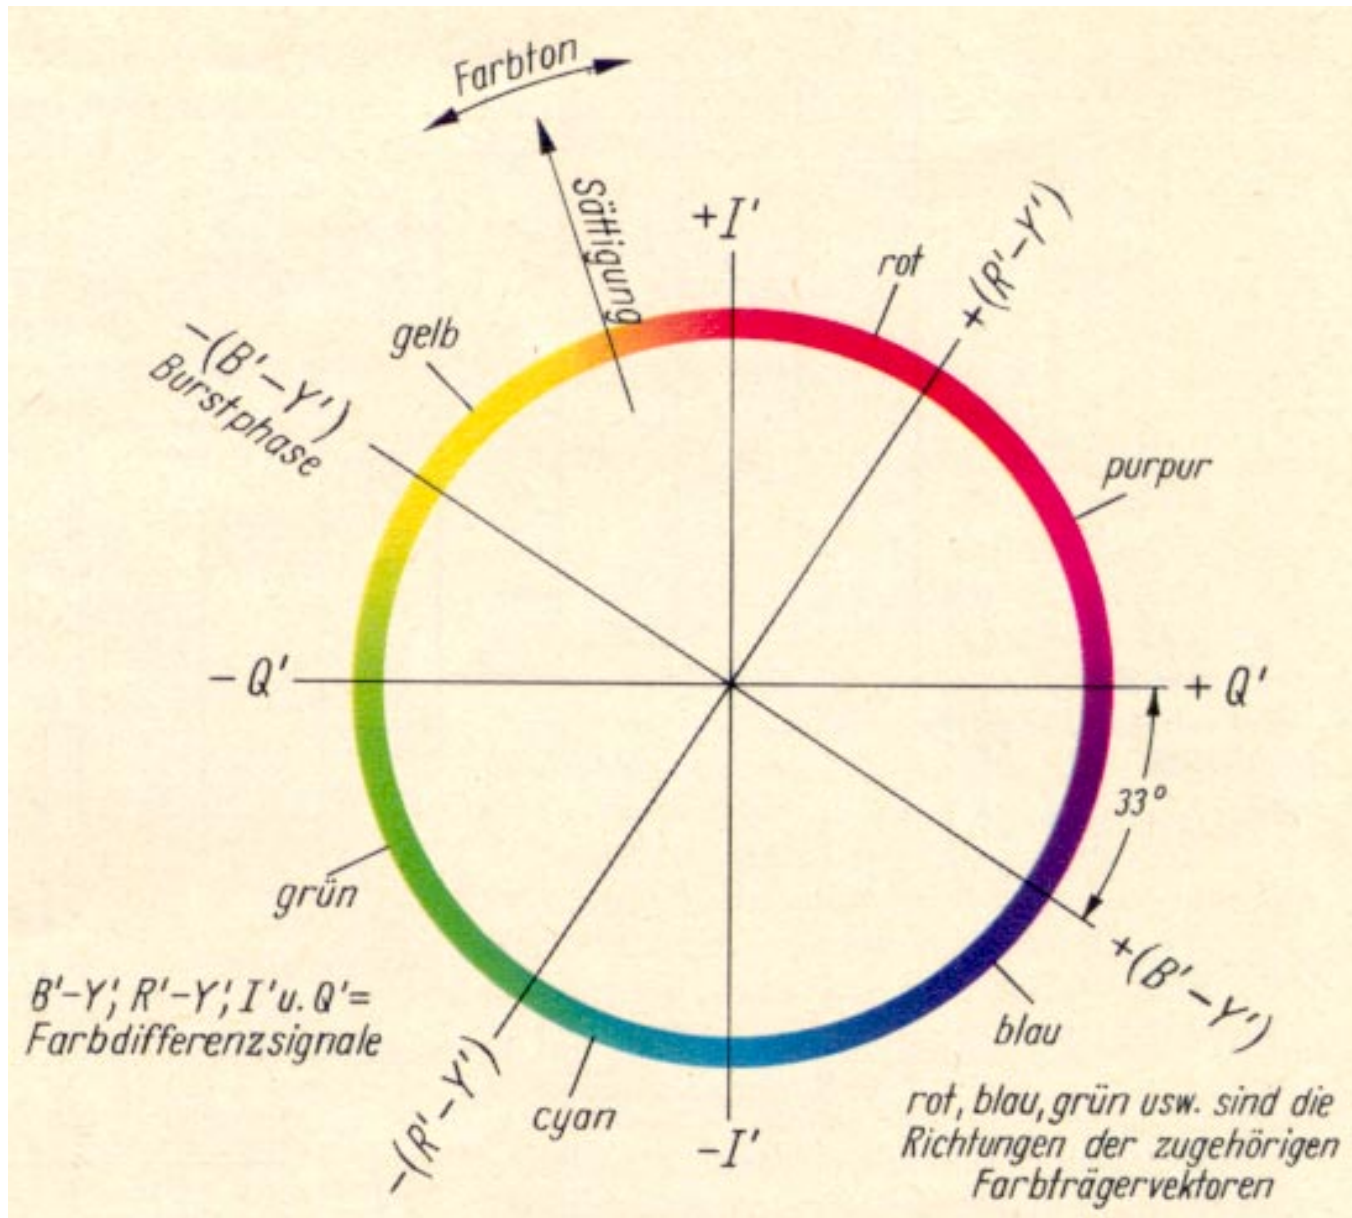 Farbton
Sättigung
+I'
rot
+(R'-Y')
gelb
-(B'-Y')
Burstphase
purpur
- Q'
+ Q'
33°
grün
+(B'-Y')
B'-Y'; R'-Y'; I' u. Q' =
Farbdifferenzsignale
blau
-(R'-Y')
cyan
-I'
rot, blau, grün usw. sind die
Richtungen der zugehörigen
Farbträgervektoren